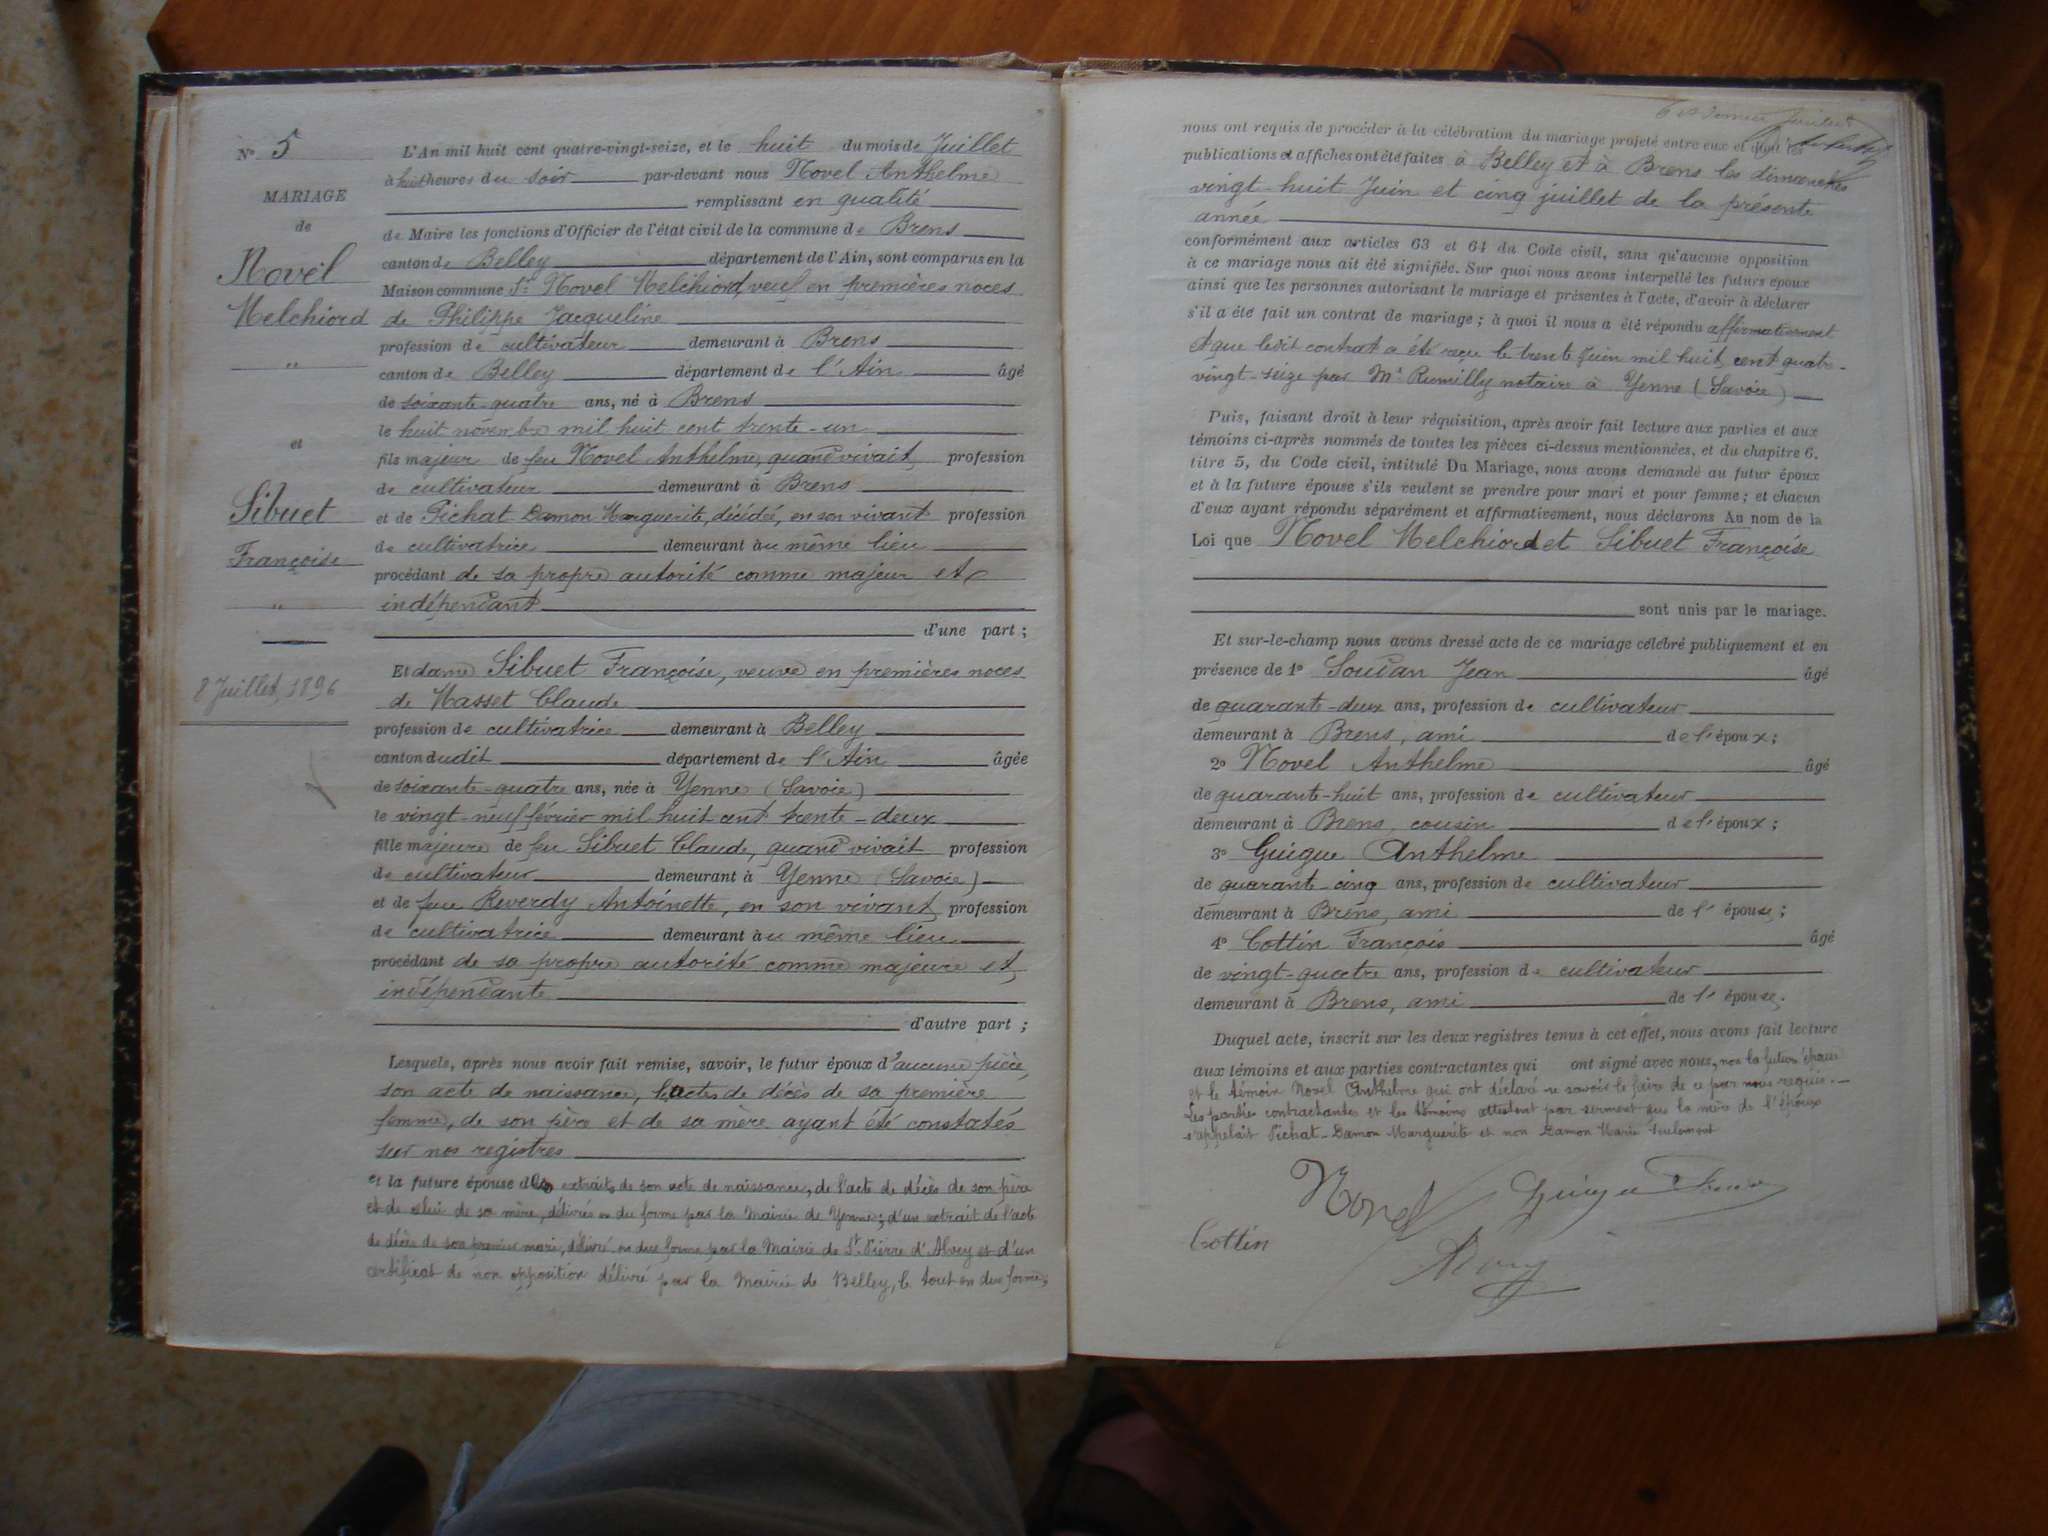 Nº 5
MARIAGE
de
Novel
Melchiord
"
et
Sibuet
Françoise
"
8 Juillet 1896
L'An mil huit cent quatre-vingt-seize, et le huit du mois de Juillet
à huit heures du soir par-devant nous Novel Anthelme
remplissant en qualité
de Maire les fonctions d'Officier de l'état civil de la commune de Brens
canton de Belley département de l'Ain, sont comparus en la
Maison commune Sr. Novel Melchiord, veuf en premières noces
de Philippe Jacqueline
profession de cultivateur demeurant à Brens
canton de Belley département de l'Ain âgé
de soixante-quatre ans, né à Brens
le huit novembre mil huit cent trente-un
fils majeur de feu Novel Anthelme, quand vivait, profession
de cultivateur demeurant à Brens
et de Pichat-Damon Marguerite, décédée, en son vivant profession
de cultivatrice demeurant au même lieu
procédant de sa propre autorité comme majeur et
indépendant
d'une part ;
Et dame Sibuet Françoise, veuve en premières noces
de Masset Claude
profession de cultivatrice demeurant à Belley
canton dudit département de l'Ain âgée
de soixante-quatre ans, née à Yenne (Savoie)
le vingt-neuf février mil huit cent trente-deux
fille majeure de feu Sibuet Claude, quand vivait profession
de cultivateur demeurant à Yenne (Savoie)
et de feue Reverdy Antoinette, en son vivant, profession
de cultivatrice demeurant au même lieu
procédant de sa propre autorité comme majeure et
indépendante
d'autre part ;
Lesquels, après nous avoir fait remise, savoir, le futur époux d'aucune pièce,
son acte de naissance, l'acte de décès de sa première
femme, de son père et de sa mère ayant été constatés
sur nos registres
et la future épouse des extraits de son acte de naissance, de l'acte de décès de son père
et de celui de sa mère, délivrés en due forme par la Mairie de Yenne; d'un extrait de l'acte
de décès de son premier mari, délivré en due forme par la Mairie de St. Pierre d'Alvey et d'un
certificat de non opposition délivré par la Mairie de Belley, le tout en due forme,
nous ont requis de procéder à la célébration du mariage projeté entre eux et dont les
publications et affiches ont été faites à Belley et à Brens les dimanches
vingt-huit Juin et cinq juillet de la présente
année
conformément aux articles 63 et 64 du Code civil, sans qu'aucune opposition
à ce mariage nous ait été signifiée. Sur quoi nous avons interpellé les futurs époux
ainsi que les personnes autorisant le mariage et présentes à l'acte, d'avoir à déclarer
s'il a été fait un contrat de mariage ; à quoi il nous a été répondu affirmativement
et que ledit contrat a été reçu le trente Juin mil huit cent quatre-
vingt-seize par Me Rumilly notaire à Yenne (Savoie)
Puis, faisant droit à leur réquisition, après avoir fait lecture aux parties et aux
témoins ci-après nommés de toutes les pièces ci-dessus mentionnées, et du chapitre 6,
titre 5, du Code civil, intitulé Du Mariage, nous avons demandé au futur époux
et à la future épouse s'ils veulent se prendre pour mari et pour femme ; et chacun
d'eux ayant répondu séparément et affirmativement, nous déclarons Au nom de la
Loi que Novel Melchiord et Sibuet Françoise
sont unis par le mariage.
Et sur-le-champ nous avons dressé acte de ce mariage célébré publiquement et en
présence de 1º Soudan Jean âgé
de quarante-deux ans, profession de cultivateur
demeurant à Brens, ami de l'époux ;
2º Novel Anthelme âgé
de quarante-huit ans, profession de cultivateur
demeurant à Brens, cousin de l'époux ;
3º Guigue Anthelme
de quarante-cinq ans, profession de cultivateur
demeurant à Brens, ami de l'épouse ;
4º Cottin François âgé
de vingt-quatre ans, profession de cultivateur
demeurant à Brens, ami de l'épouse.
Duquel acte, inscrit sur les deux registres tenus à cet effet, nous avons fait lecture
aux témoins et aux parties contractantes qui ont signé avec nous, non la future épouse
et le témoin Novel Anthelme qui ont déclaré ne savoir le faire de ce par nous requis.
Les parties contractantes et les témoins attestent par serment que la mère de l'époux
s'appelait Pichat-Damon Marguerite et non Damon Marie seulement
Novel
Guigue
Cottin